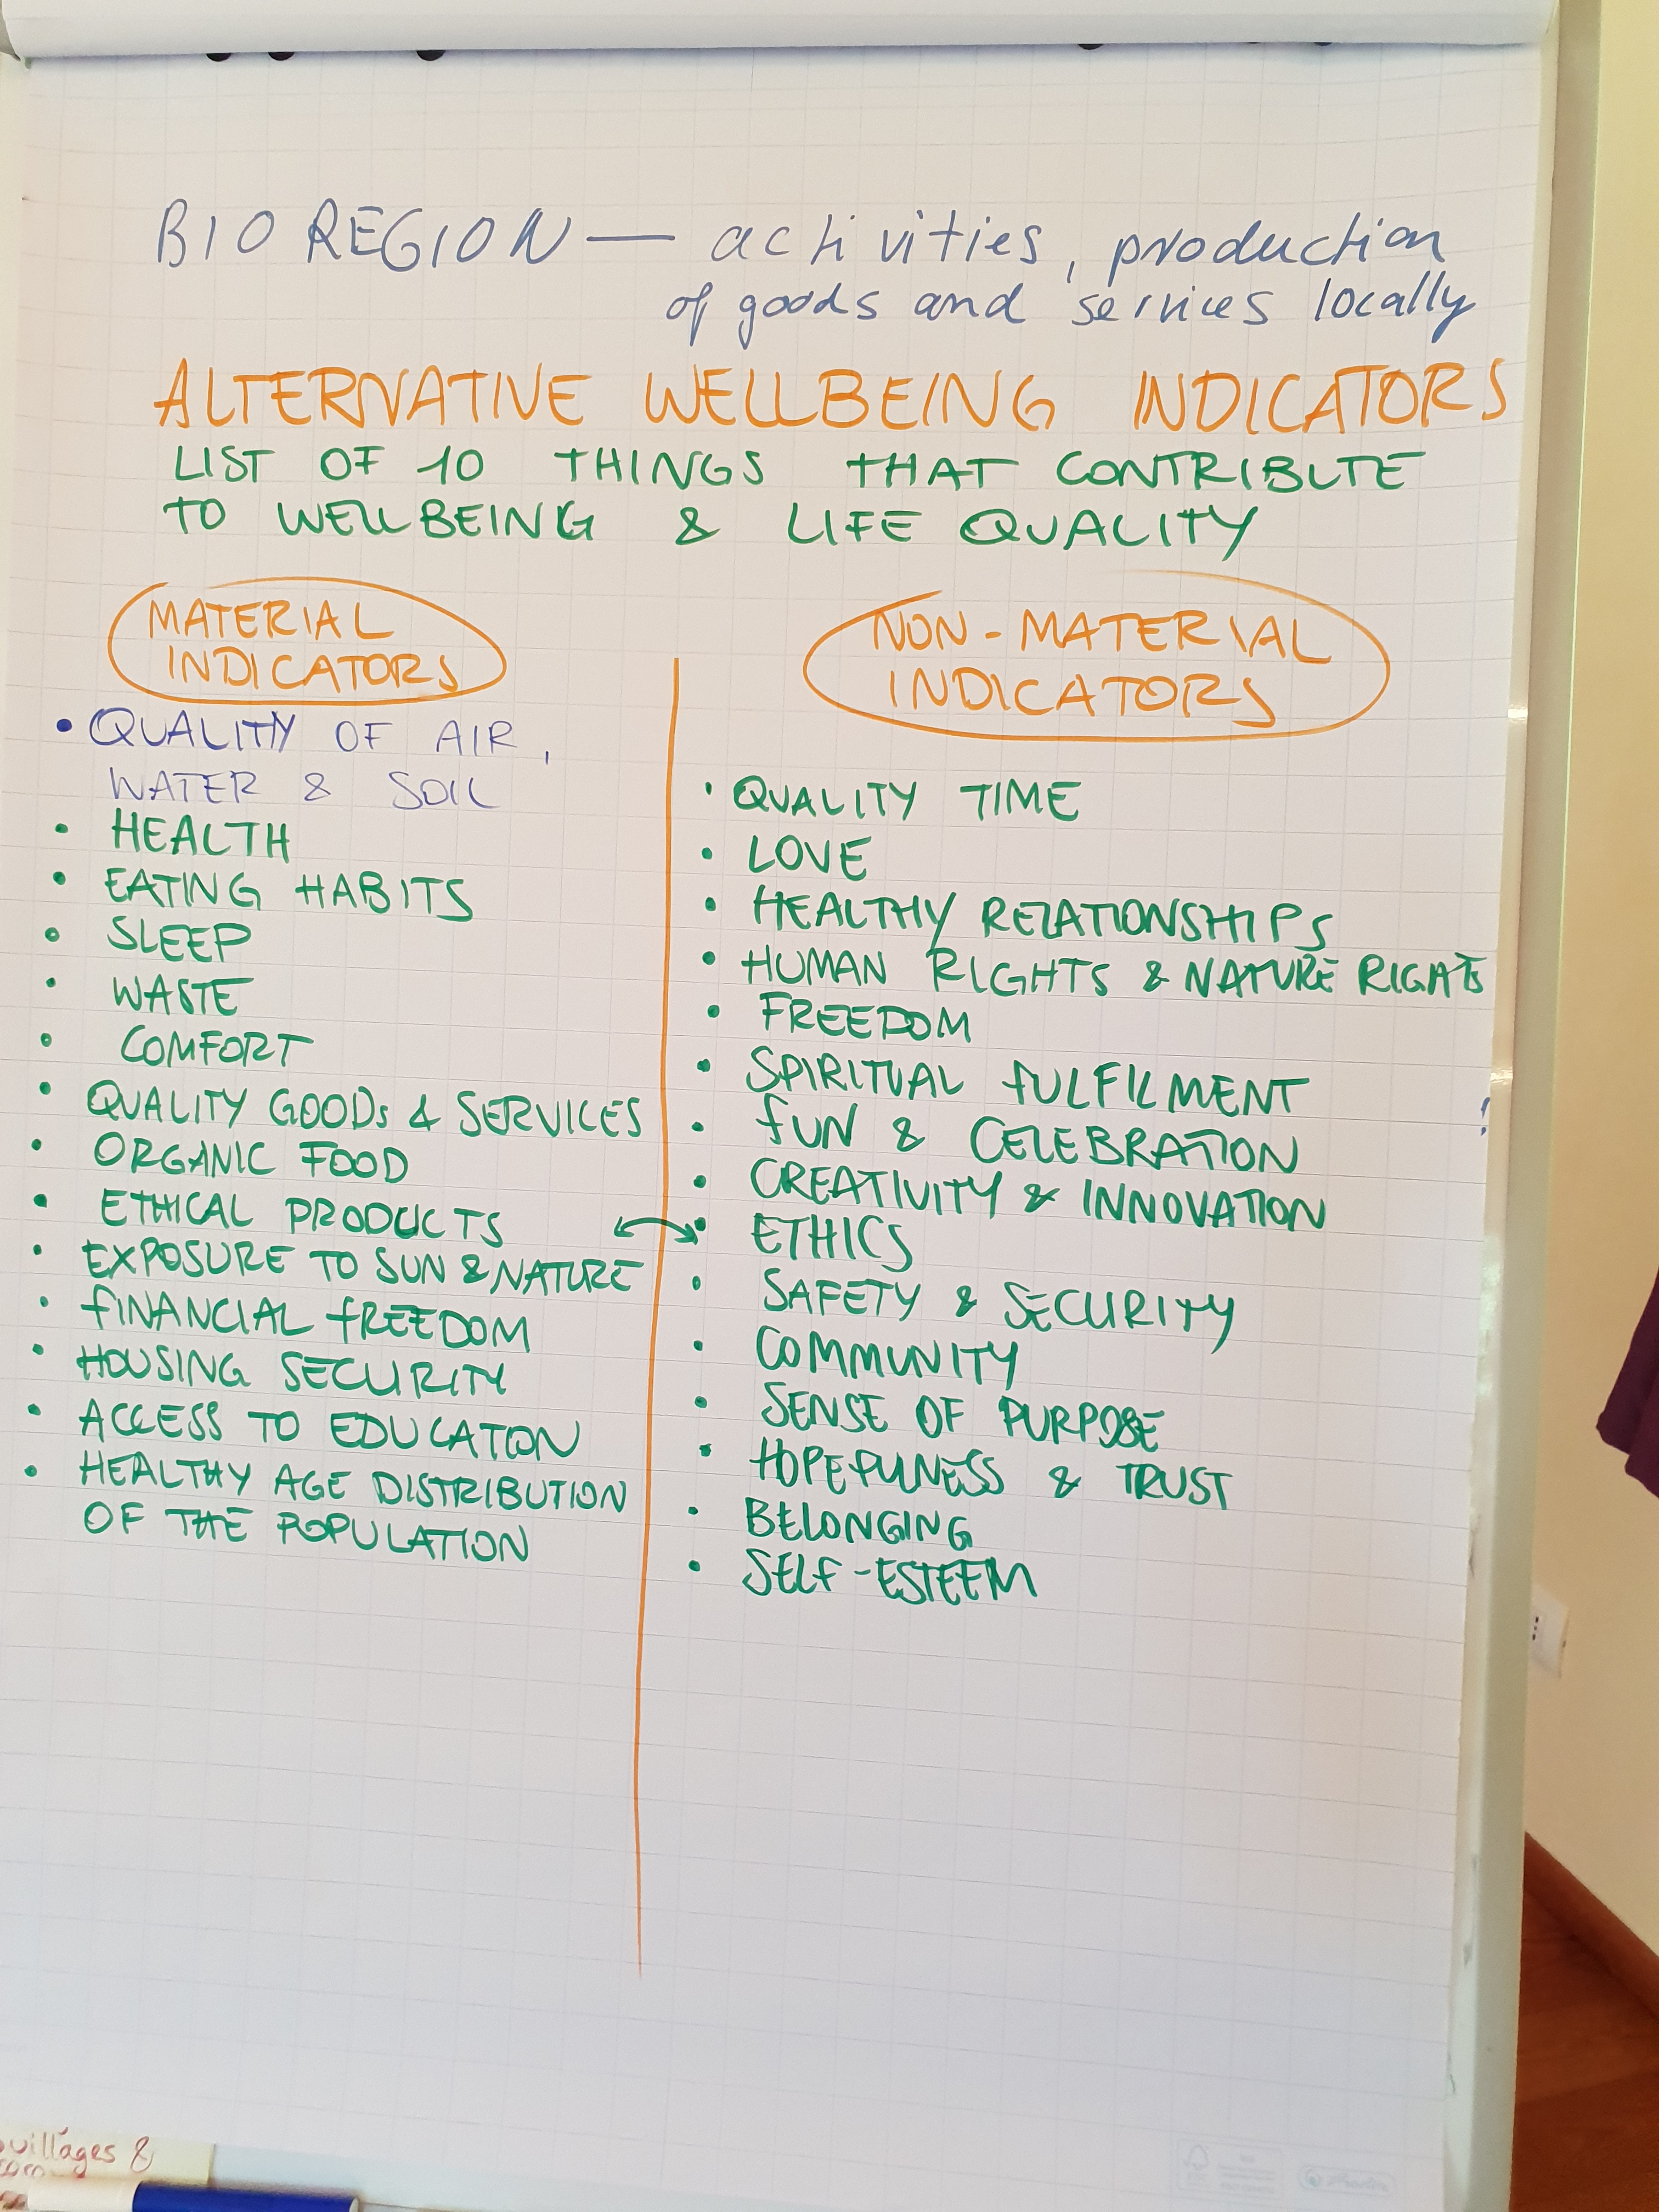 BIO REGION — activities, production
of goods and services locally
ALTERNATIVE WELLBEING INDICATORS
LIST OF 10 THINGS THAT CONTRIBUTE
TO WELLBEING & LIFE QUALITY
MATERIAL
INDICATORS
• QUALITY OF AIR,
WATER & SOIL
• HEALTH
• EATING HABITS
• SLEEP
• WASTE
• COMFORT
• QUALITY GOODS & SERVICES
• ORGANIC FOOD
• ETHICAL PRODUCTS
• EXPOSURE TO SUN & NATURE
• FINANCIAL FREEDOM
• HOUSING SECURITY
• ACCESS TO EDUCATION
• HEALTHY AGE DISTRIBUTION
OF THE POPULATION
NON-MATERIAL
INDICATORS
• QUALITY TIME
• LOVE
• HEALTHY RELATIONSHIPS
• HUMAN RIGHTS & NATURE RIGHTS
• FREEDOM
• SPIRITUAL FULFILMENT
• FUN & CELEBRATION !
• CREATIVITY & INNOVATION
• ETHICS
• SAFETY & SECURITY
• COMMUNITY
• SENSE OF PURPOSE
• HOPEFULNESS & TRUST
• BELONGING
• SELF-ESTEEM
villages &